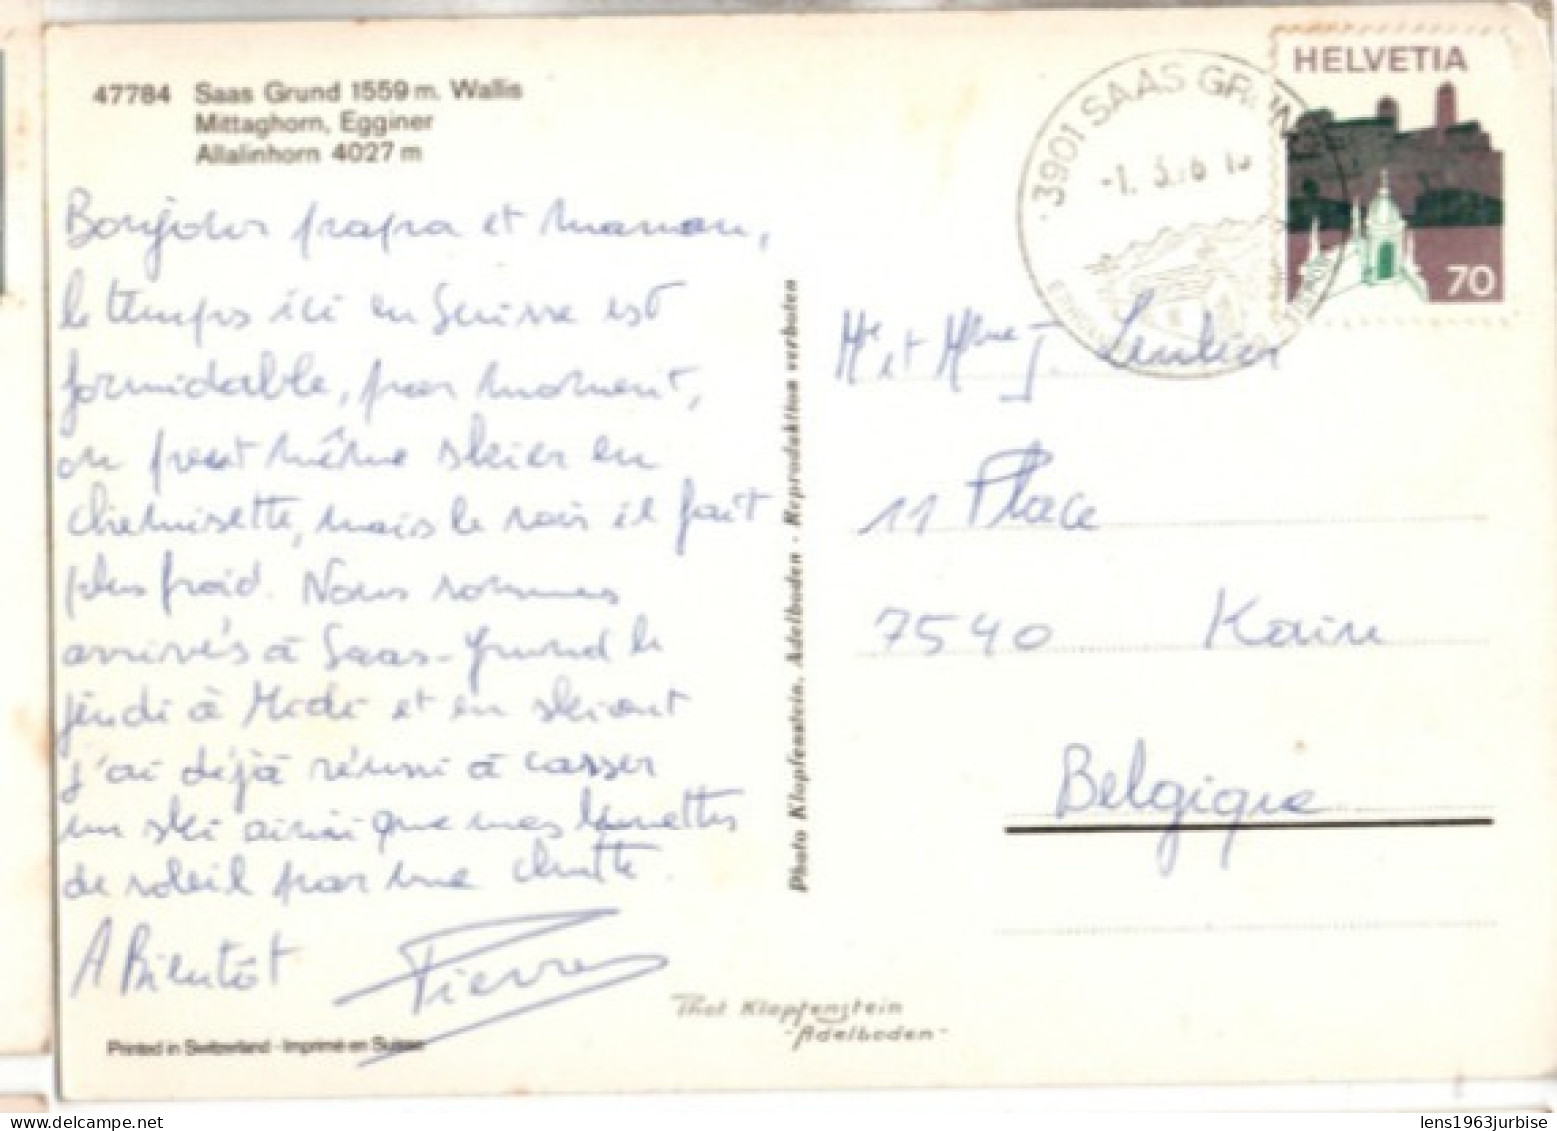 47784 Saas Grund 1559 m. Wallis
Mittaghorn, Egginer
Allalinhorn 4027 m
Bonjour papa et maman,
le temps ici en Suisse est
formidable, par moment,
on peut même skier en
chemisette, mais le soir il fait
plus froid. Nous sommes
arrivés à Saas-Grund le
jeudi à Midi et en skiant
j'ai déjà réussi à casser
un ski ainsi que mes lunettes
de soleil par une chutte.
A Bientôt Pierre
Printed in Switzerland - Imprimé en Suisse
Photo Klopfenstein, Adelboden - Reproduktion verboten
Phot Klopfenstein
-Adelboden-
3901 SAAS GRUND
HELVETIA
70
Mr et Mme J.
11 Place
7540 Kain
Belgique
lens1963jurbise